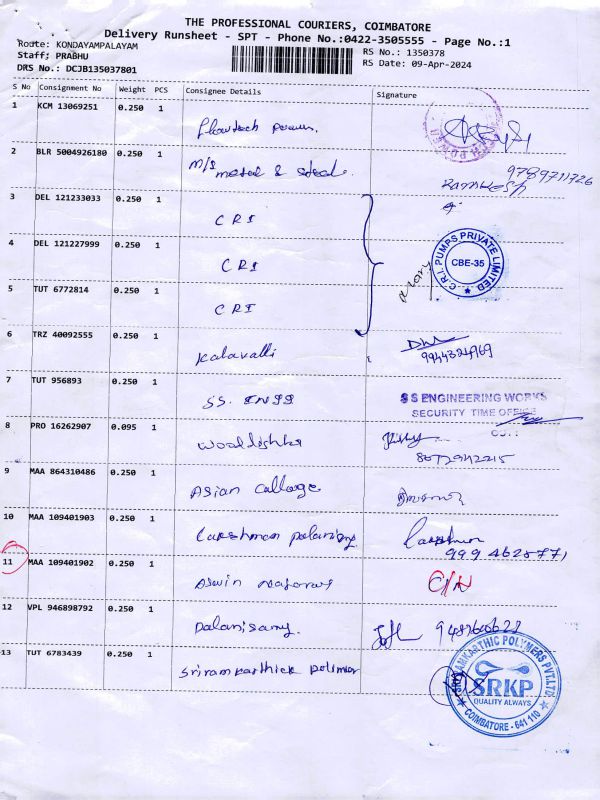 THE PROFESSIONAL COURIERS, COIMBATORE
Delivery Runsheet - SPT - Phone No.:0422-3505555 - Page No.:1
Route: KONDAYAMPALAYAM
Staff: PRABHU
DRS No.: DCJB135037801
RS No.: 1350378
RS Date: 09-Apr-2024
S No Consignment No Weight PCS Consignee Details Signature
1 KCM 13069251 0.250 1
2 BLR 5004926180 0.250 1 M/s metal & steel
Ramkesh 9789711726
3 DEL 121233033 0.250 1 CRI
4 DEL 121227999 0.250 1 CRI
C.R.I. PUMPS PRIVATE LIMITED
CBE-35
5 TUT 6772814 0.250 1 CRI
6 TRZ 40092555 0.250 1 Kalavalli
7 TUT 956893 0.250 1 SS. ENGG
S S ENGINEERING WORKS
SECURITY TIME OFFICE
8 PRO 16262907 0.095 1
8072942215
9 MAA 864310486 0.250 1 Asian Collage
10 MAA 109401903 0.250 1 Lakshman palanisamy
999 4628771
11 MAA 109401902 0.250 1 Aswin
12 VPL 946898792 0.250 1 Palanisamy.
13 TUT 6783439 0.250 1 Sriramkarthick polimer
SRIRAMKARTHIC POLYMERS PVT.LTD
SRKP
QUALITY ALWAYS
COIMBATORE - 641 110